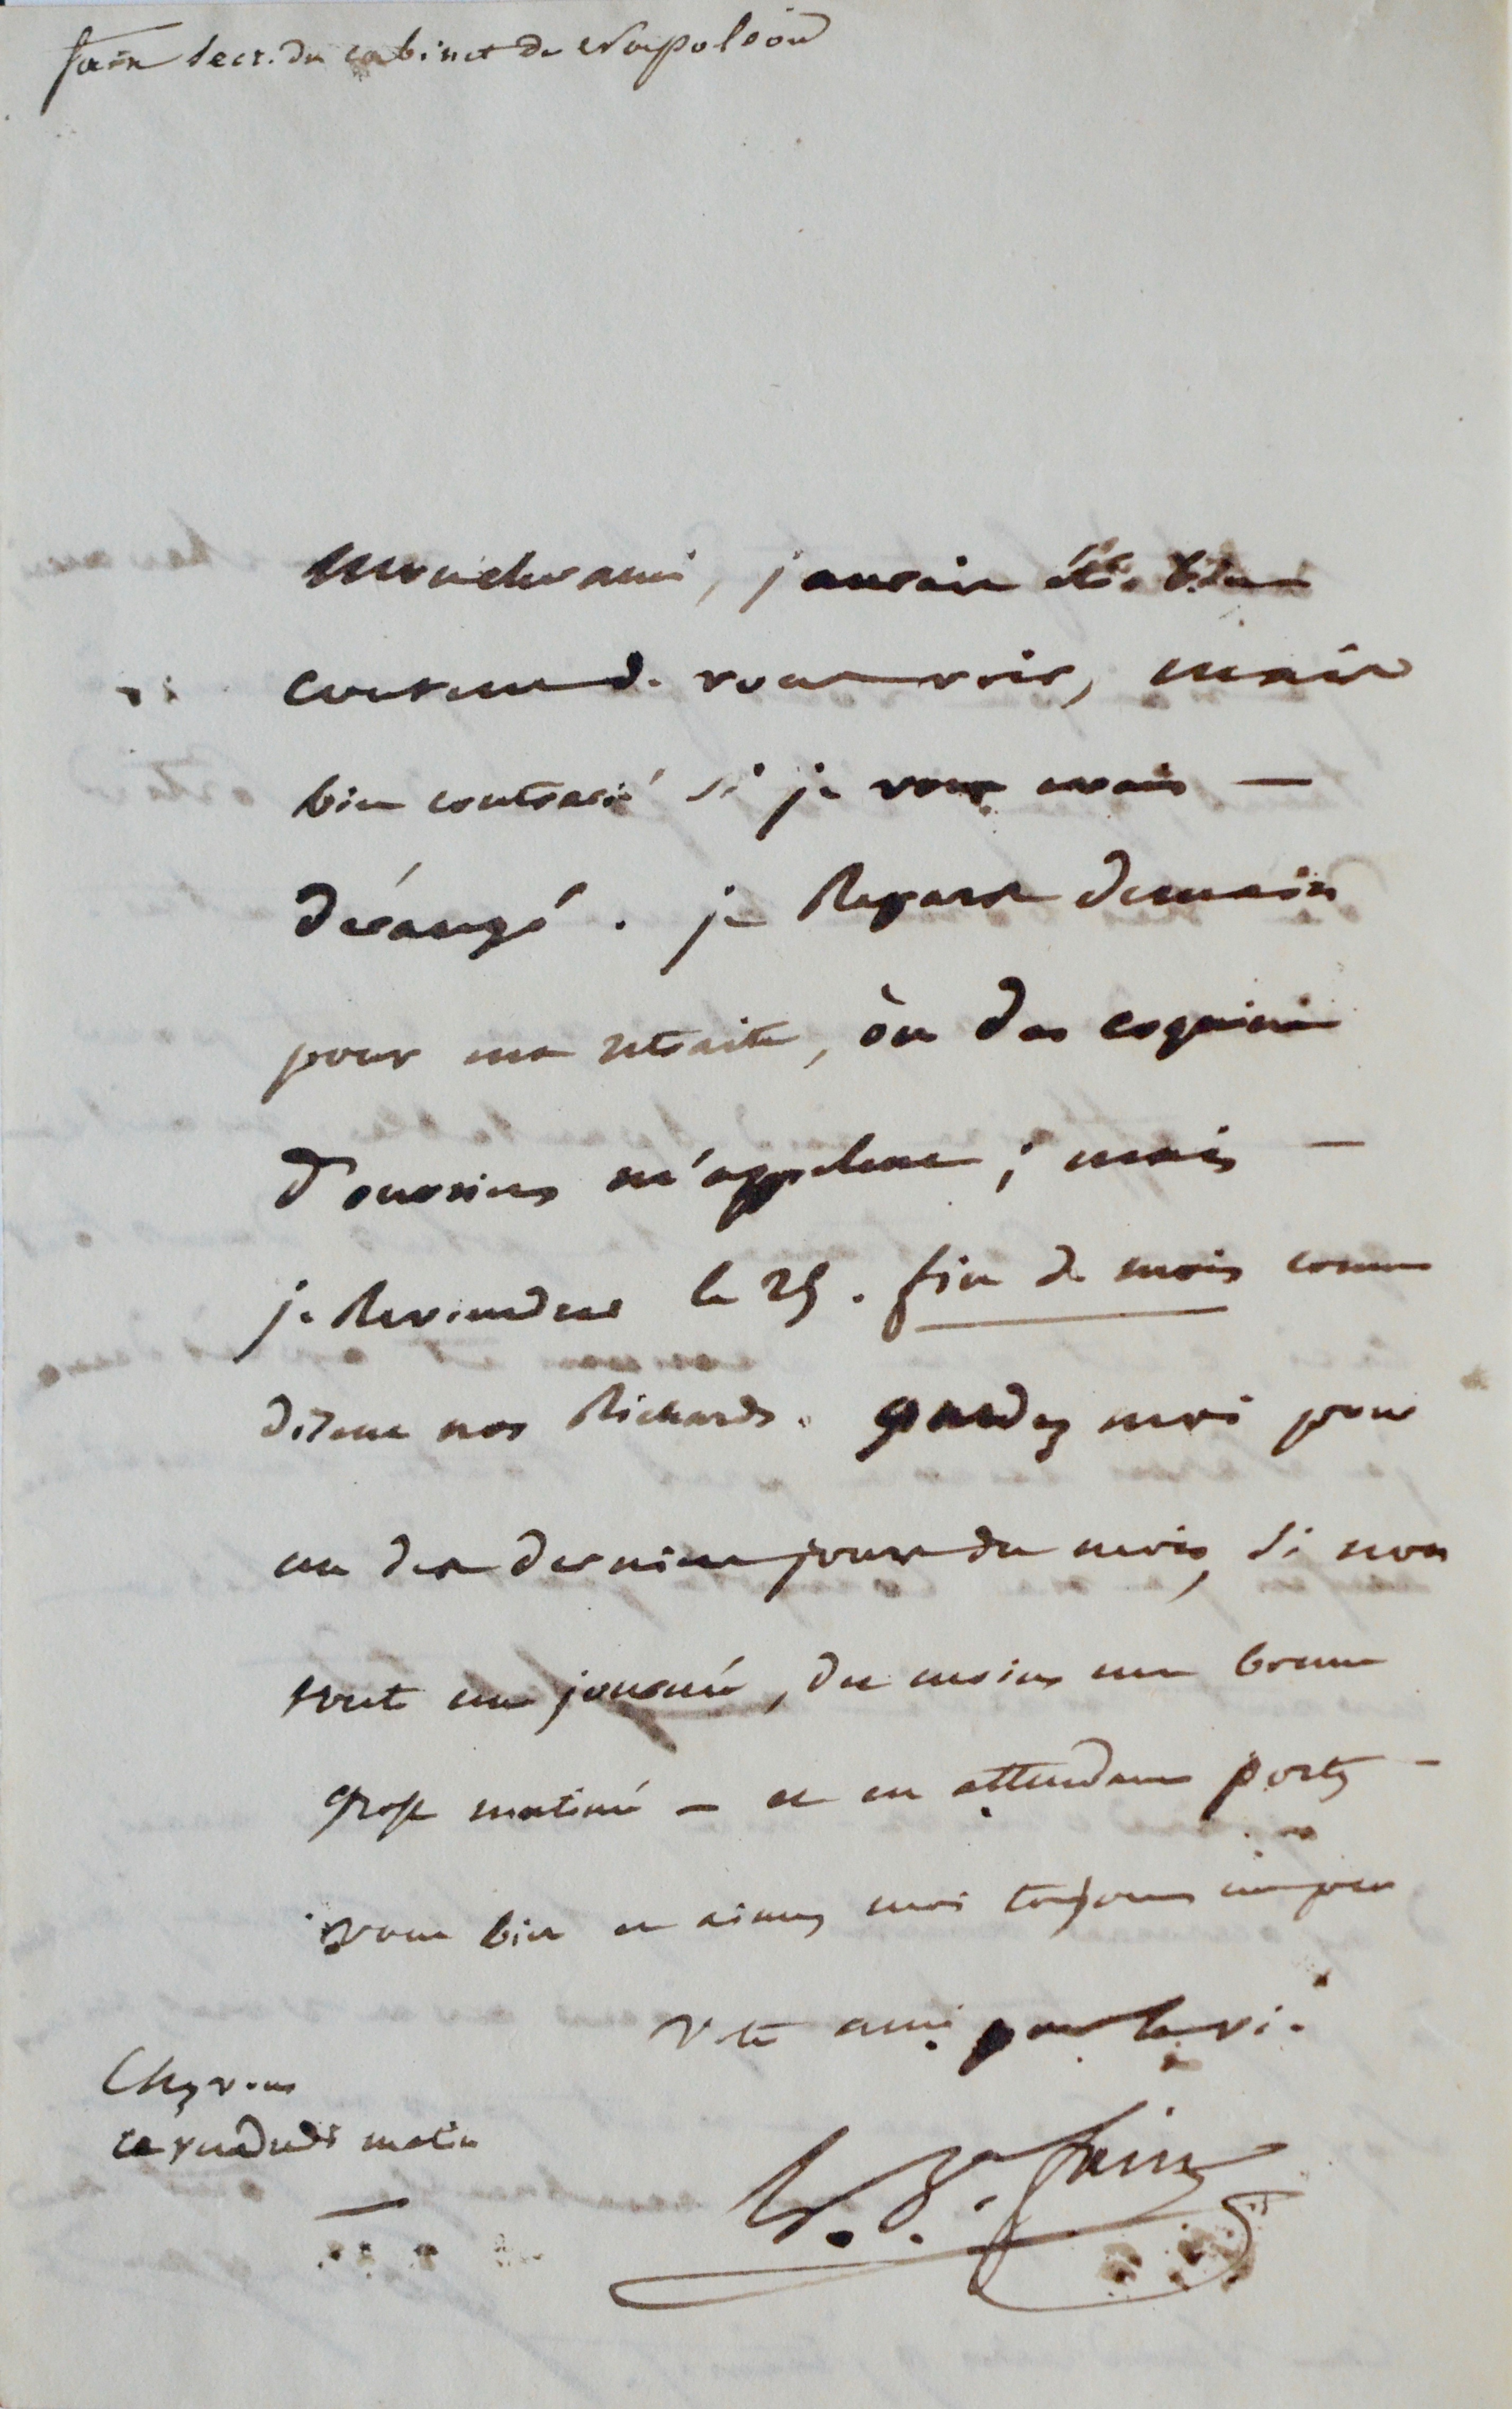 fain secr. du cabinet de Napoléon
Mon cher ami, j'aurais été bien
content de vous voir, mais
bien contrarié si je vous avais —
dérangé. je Repars demain
pour ma retraite, où des
m'appellent ; mais —
je Reviendrai le 25. fin de mois comme
disent nos Richards. gardez moi pour
un des derniers jours du mois, si non
tout une journée, du moins une bonne
grosse matinée — et en attendant portez —
vous bien et aimez moi toujours un peu
votre ami pour la vie.
Chez vous
ce vendredi matin
Bn. fain